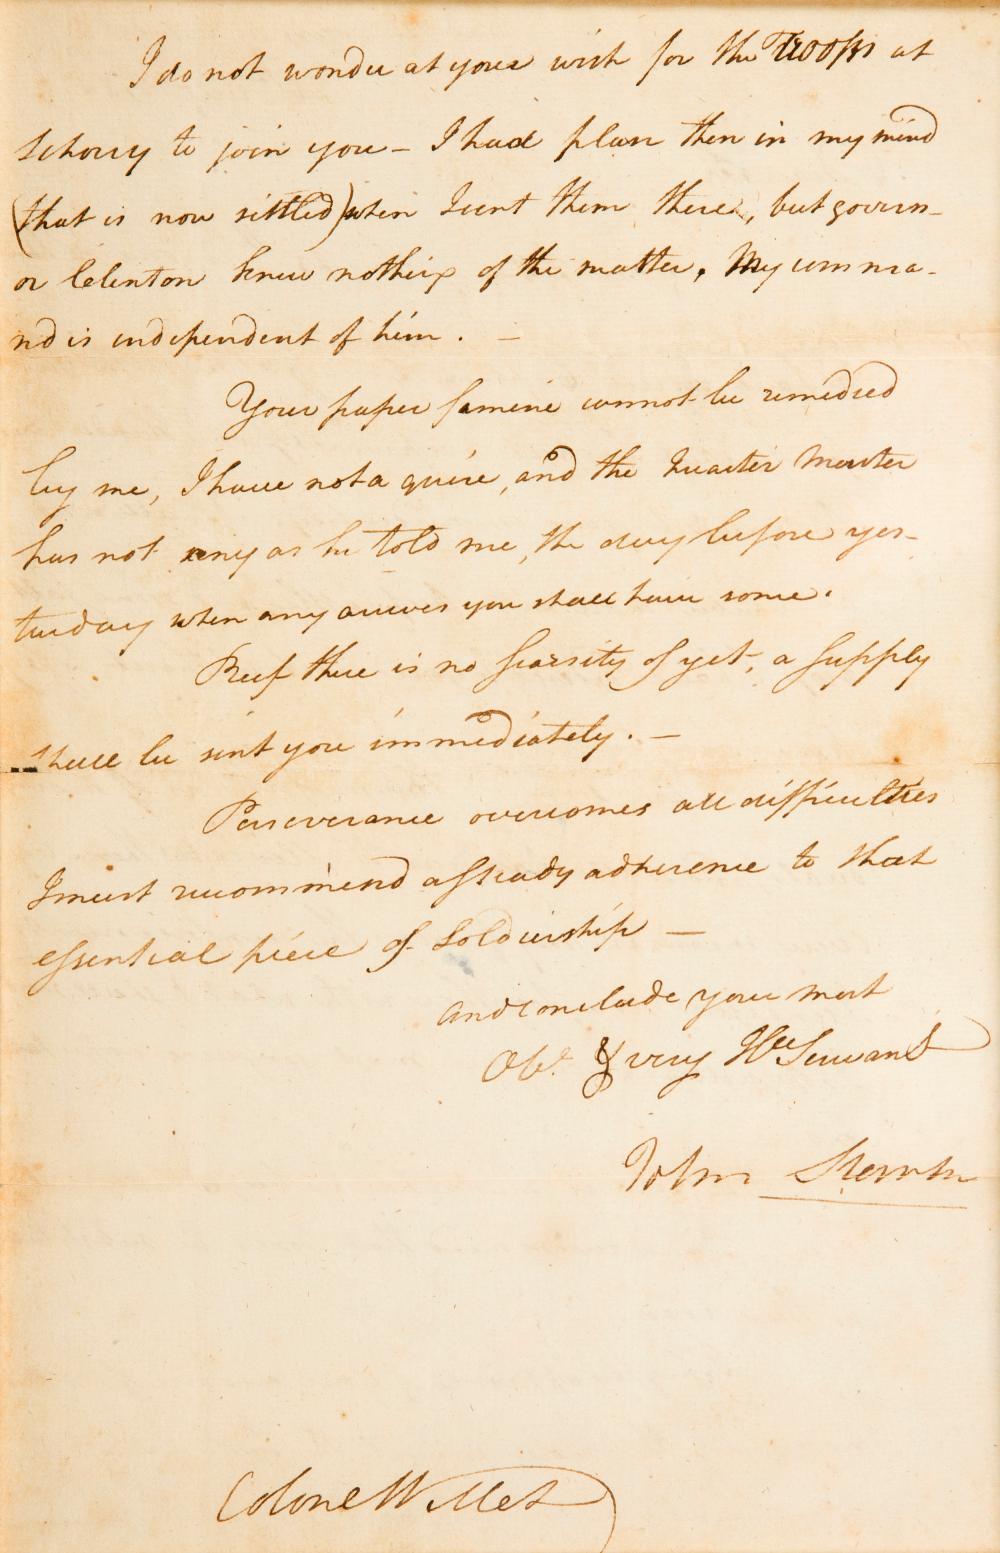 I do not wonder at your wish for the Troops at
Schorry to join you – I had plan then in my mind
(that is now settled) when I sent them there, but govern-
or Clenton knew nothing of the matter, My comma-
nd is independent of him. –
Your paper famine cannot be remedied
by me, I have not a quire, and the Quarter Master
has not any as he told me, the day before yes-
terday when any arrives you shall have some.
Beef there is no scarsity of yet, a supply
shall be sent you immediately. –
Perseverance overcomes all difficulties
I must recommend a steady adherence to that
essential piece of Soldiership –
and conclude your most
Obt. & very Hle Servant
John
Colonel Willet